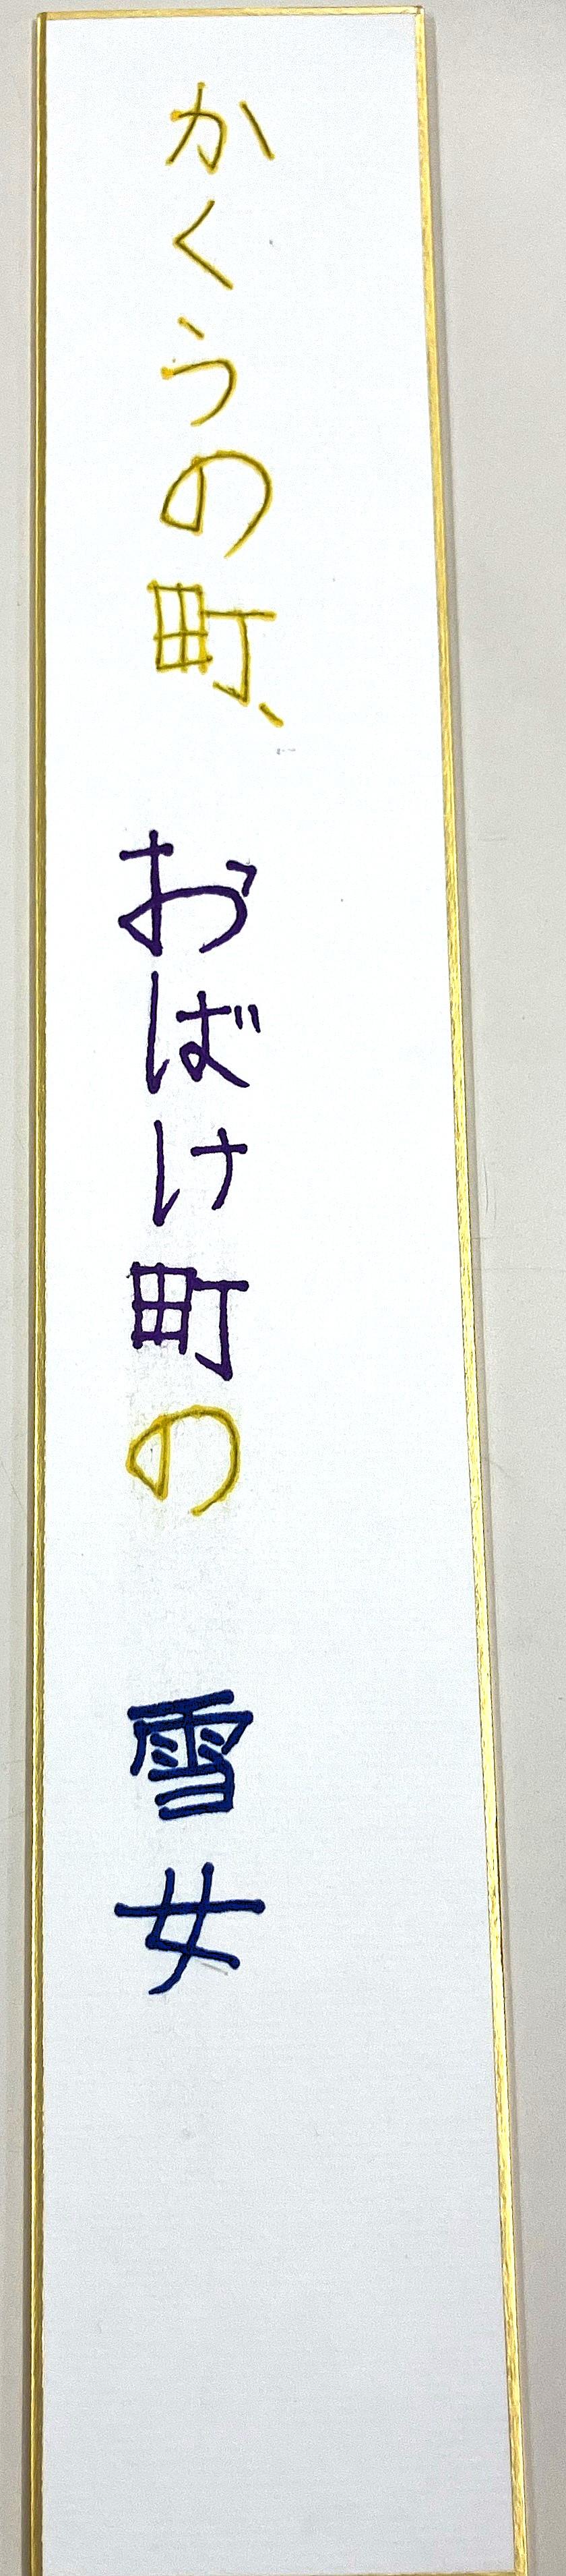 かくうの町、おばけ町の 雪女